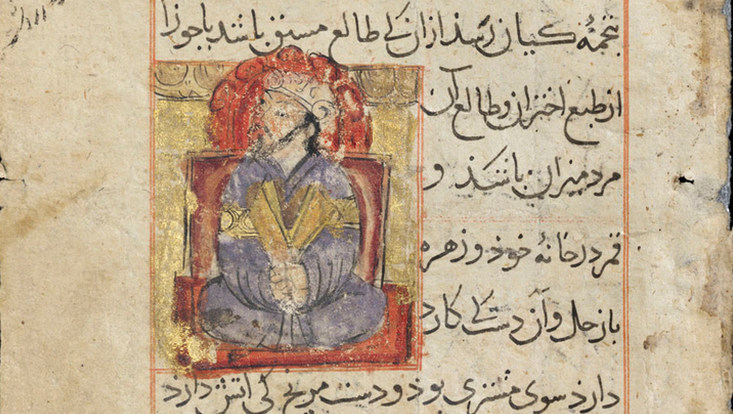 بتخمهٔ کیان رسد ازان کی طالع مستق باشد با جوزا
از طبع اختران و طالع آن
مرد میزان باشد و
قمر در خانهٔ خود و زهره
با زحل و آن دست کی کارد
دارد سوی مشتری بود و دست مریخ کی اتش دارد